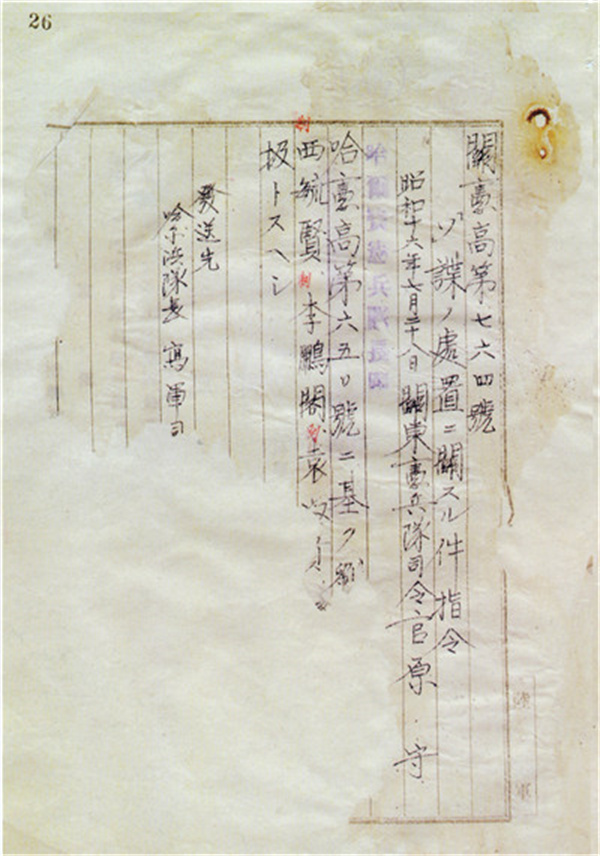 26
關憲高第七六四號
ソ諜ノ處置ニ關スル件指令
昭和十六年七月二十八日 關東憲兵隊司令官 原 守
哈爾賓憲兵隊長殿
哈憲高第六五〇號ニ基ク
毓賢、李鵬閣、袁
扱トスヘシ
發送先
哈尓浜隊長 寫 軍司
陸軍